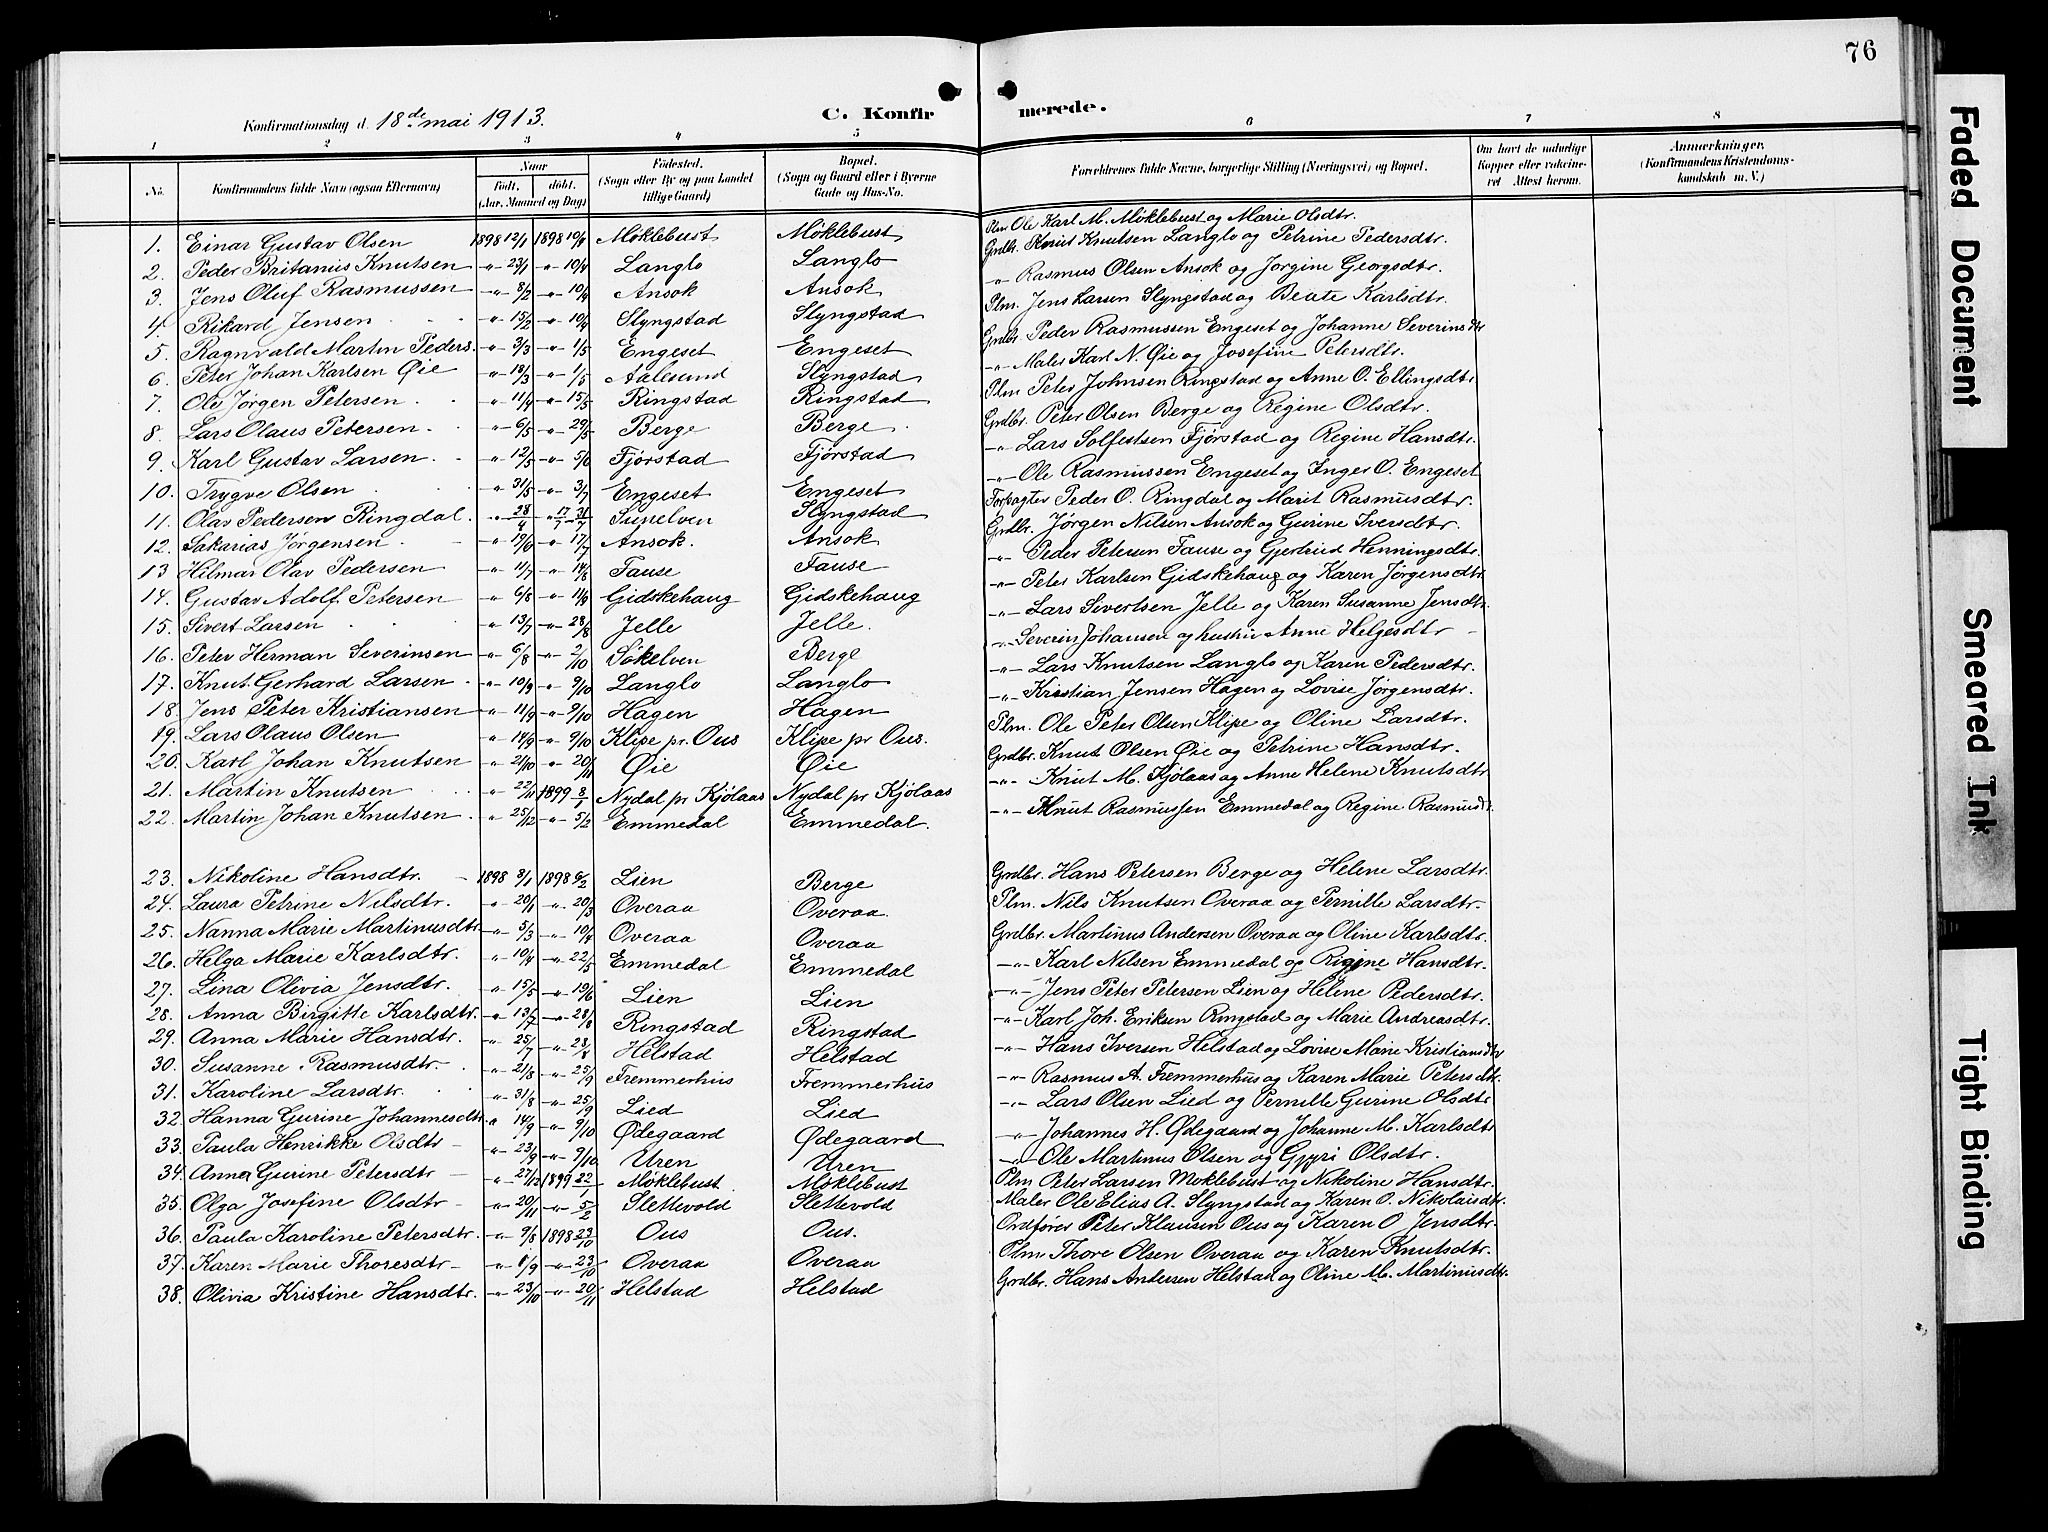 76
Konfirmationsdag d. 18de mai 1913.
C. Konfirmerede.
1 2 3 4 5 6 7 8
No. Konfirmandens fulde Navn (ogsaa Efternavn) Naar Födt, döbt. (Aar, Maaned og Dag) Födested. (Sogn eller By og paa Landet tillige Gaard) Bopæl. (Sogn og Gaard eller i Byerne Gade og Hus-No. Forældrenes fulde Navne, borgerlige Stilling (Næringsvei) og Bopæl. Om havt de naturlige Kopper eller vaccineret Attest herom. Anmærkninger. (Konfirmandens Kristendomskundskab m. V.)
1. Einar Gustav Olsen 1898 12/1 1898 Møklebust Møklebust Plm Ole Karl M. Møklebust og Marie Olsdtr.
2. Peder Britanius Knutsen -"- 23/1 -"- 10/4 Langlo Langlo Grdbr. Knut Knutsen Langlo og Petrine Pedersdtr.
3. Jens Oluf Rasmussen -"- 8/2 -"- 10/4 Ansok Ansok -"- Rasmus Olsen Ansok og Jorgine Georgsdtr.
4. Rikard Jensen -"- 15/2 -"- 10/4 Slyngstad Slyngstad Plm. Jens Larsen Slyngstad og Beate Karlsdtr.
5. Ragnvald Martin Peders. -"- 3/3 -"- 1/5 Engeset Engeset Grdbr. Peder Rasmussen Engeset og Johanne Severinsdtr
6. Peter Johan Karlsen Øie -"- 18/3 -"- 1/5 Aalesund Slyngstad -"- Maler Karl N. Øie og Josefine Petersdtr.
7. Ole Jörgen Petersen -"- 11/4 -"- 15/5 Ringstad Ringstad Plm Peter Johnsen Ringstad og Anne O. Ellingsdtr
8. Lars Olaus Petersen -"- 6/5 -"- 29/5 Berge Berge Grdbr. Peter Olsen Berge og Regine Olsdtr.
9. Karl Gustav Larsen -"- 12/5 -"- 5/6 Fjörstad Fjörstad -"- Lars Solfestsen Fjörstad og Regine Hansdtr.
10. Trygve Olsen -"- 31/5 -"- 3/7 Engeset Engeset -"- Ole Rasmussen Engeset og Inger O. Engeset
11. Olav Pedersen Ringdal. -"- 28/4 17/7 31/7 Sunelven Slyngstad Forpagter Peder O. Ringdal og Marit Rasmusdtr.
12. Sakarias Jörgensen -"- 19/6 -"- 17/7 Ansok. Ansok Grdbr. Jörgen Nilsen Ansok og Gurine Iversdtr.
13 Hilmar Olav Pedersen -"- 11/7 -"- 14/8 Fause Fause -"- Peder Petersen Fause og Gjertrud Henningsdtr.
14. Gustav Adolf Petersen -"- 6/8 -"- 11/9 Gidskehaug Gidskehaug -"- Peter Karlsen Gidskehaug og Karen Jörgensdtr
15. Sivert Larsen -"- 13/7 -"- 28/8 Jelle Jelle. -"- Lars Sivertsen Jelle og Karen Susanne Jensdtr.
16. Peter Herman Severinsen -"- 6/8 -"- 2/10 Sökelven Berge -"- Severin Johansen og hustru Anne Helgesdtr
17. Knut Gerhard Larsen -"- 10/9 -"- 9/10 Langlo Langlo -"- Lars Knutsen Langlo og Karen Pedersdtr.
18 Jens Peter Kristiansen -"- 11/9 -"- 9/10 Hagen Hagen -"- Kristian Jensen Hagen og Lovise Jörgensdtr.
19. Lars Olaus Olsen -"- 14/9 -"- 9/10 Klipe pr. Ous Klipe pr Ous. Plm. Ole Peter Olsen Klipe og Oline Larsdtr.
20. Karl Johan Knutsen -"- 21/10 -"- 20/11 Øie Øie Grdbr. Knut Olsen Øie og Petrine Hansdtr.
21. Martin Knutsen -"- 22/11 1899 8/1 Nydal pr Kjölaas Nydal pr Kjölaas -"- Knut M. Kjölaas og Anne Helene Knutsdtr
22. Martin Johan Knutsen -"- 25/12 -"- 5/2 Emmedal Emmedal. -"- Knut Rasmussen Emmedal og Regine Rasmusdt.
23. Nikoline Hansdtr. 1898 8/1 1898 6/2 Lien Berge Grdbr. Hans Petersen Berge og Helene Larsdtr.
24. Laura Petrine Nilsdtr. -"- 20/1 -"- 20/3 Overaa Overaa. Plm. Nils Knutsen Overaa og Pernille Larsdtr.
25. Nanna Marie Martinusdtr -"- 5/3 -"- 10/4 Overaa Overaa Grdbr. Martinus Andersen Overaa og Oline Karlsdtr.
26. Helga Marie Karlsdtr. -"- 10/4 -"- 22/5 Emmedal Emmedal -"- Karl Nilsen Emmedal og Rigine Hansdtr.
27. Lina Olivia Jensdtr. -"- 15/5 -"- 19/6 Lien Lien -"- Jens Peter Petersen Lien og Helene Pedersdtr.
28. Anna Birgitte Karlsdtr. -"- 13/7 -"- 28/8 Ringstad Ringstad -"- Karl Joh. Eriksen Ringstad og Marie Andreasdtr.
29. Anna Marie Hansdtr. -"- 25/7 -"- 28/8 Helstad Helstad -"- Hans Iversen Helstad og Lovise Marie Kristiansdtr
30. Susanne Rasmusdtr. -"- 21/8 -"- 25/9 Fremmerhus Fremmerhus -"- Rasmus A. Fremmerhus og Karen Marie Petersdtr.
31. Karoline Larsdtr. -"- 31/8 -"- 25/9 Lied Lied -"- Lars Olsen Lied og Pernille Gurine Olsdtr
32. Hanna Gurine Johannesdtr. -"- 14/9 -"- 9/10 Ødegaard Ødegaard -"- Johannes H. Ødegaard og Johanne M. Karlsdtr
33. Paula Henrikke Olsdtr -"- 23/9 -"- 9/10. Uren Uren -"- Ole Martinus Olsen og Gyri Olsdtr.
34. Anna Gurine Petersdtr -"- 27/12 1899 22/1 Møklebust Møklebust Plm Peter Larsen Moklebust og Nikoline Hansdtr.
35. Olga Josefine Olsdtr -"- 20/11 -"- 5/2 Slettevold Slettevold Maler Ole Elias A. Slyngstad og Karen O. Nikolaisdtr.
36. Paula Karoline Petersdtr. -"- 9/8 1898 23/10 Ous Ous. Ordfører Peter Klausen Ous og Karen O. Jensdtr.
37. Karen Marie Thoresdtr -"- -"- 23/10 Overaa Overaa Plm Thore Olsen Overaa og Karen Knutsdtr.
38. Olivia Kristine Hansdtr. -"- 23/10 -"- 20/11 Helstad Helstad Grdbr. Hans Andersen Helstad og Oline M. Martinusdtr.
Faded Document
Smeared Ink
Tight Binding